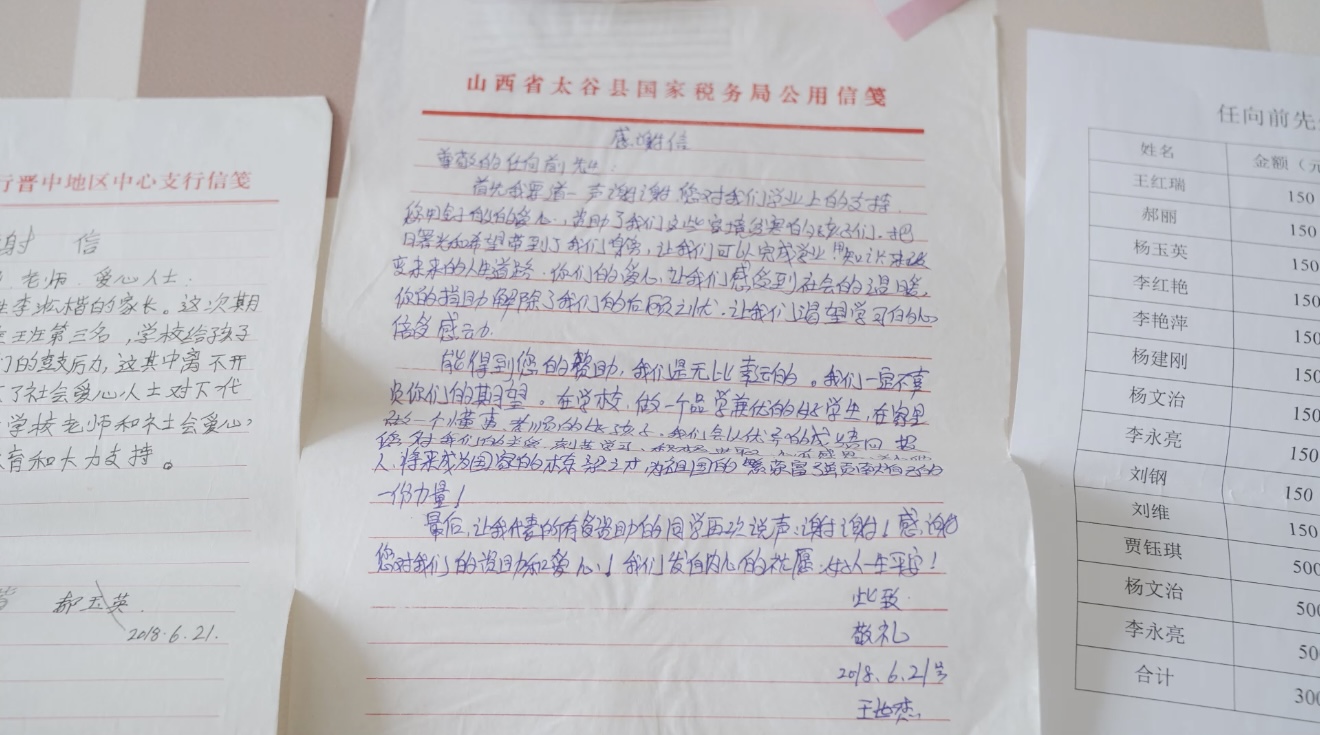 行晋中地区中心支行信笺
谢 信
老师、爱心人士:
李 楷的家长。这次期
班第三名,学校给孩子
们的鼓后力,这其中离不开
了社会爱心人士对下代
学校老师和社会爱心
育和大力支持。
郝玉英
2018.6.21.
山西省太谷县国家税务局公用信笺
感谢信
尊敬的任向前先生:
首先我要道一声谢谢 您对我们学业上的支持
您用 的爱心,资助了我们这些家境 的孩子们,把
曙光和希望带到了我们身旁,让我们可以完成学业!知识来改
变未来的人生道路,你们的爱心,让我们感受到社会的温暖,
你的捐助解除了我们的后顾之忧,让我们渴望学习的心
倍受感动
能得到您的赞助,我们是无比幸运的。我们一定不辜
负你们的期望。在学校,做一个品学兼优的好学生,在家里
做一个懂事、 的好孩子,我们会以优异的成绩回报
您对我们的
人,将来成为国家的栋梁之才为祖国的繁荣富强贡献自己的
一份力量!
最后,让我代表所有受资助的同学再次说声:谢谢!感谢
您对我们的资助和爱心!我们发自内心的祝愿:好人一生平安!
此致
敬礼
2018.6.21号
王 杰
任向前先
姓名 金额(元
王红瑞 150
郝丽 150
杨玉英 150
李红艳 150
李艳萍 150
杨建刚 150
杨文治 150
李永亮 150
刘钢 150
刘维 150
贾钰琪 500
杨文治 500
李永亮 500
合计 300